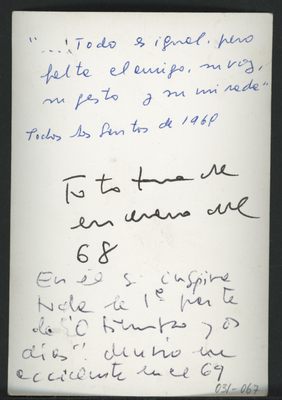 "...! Todo es igual, pero
falta el amigo, su voz,
su gesto y su mirada"
Todos los Santos de 1968
Foto de
en enero del
68
En él se inspira
toda la 1ª parte
de "O tempo y os
días". Murió en
accidente en el 69
031-067